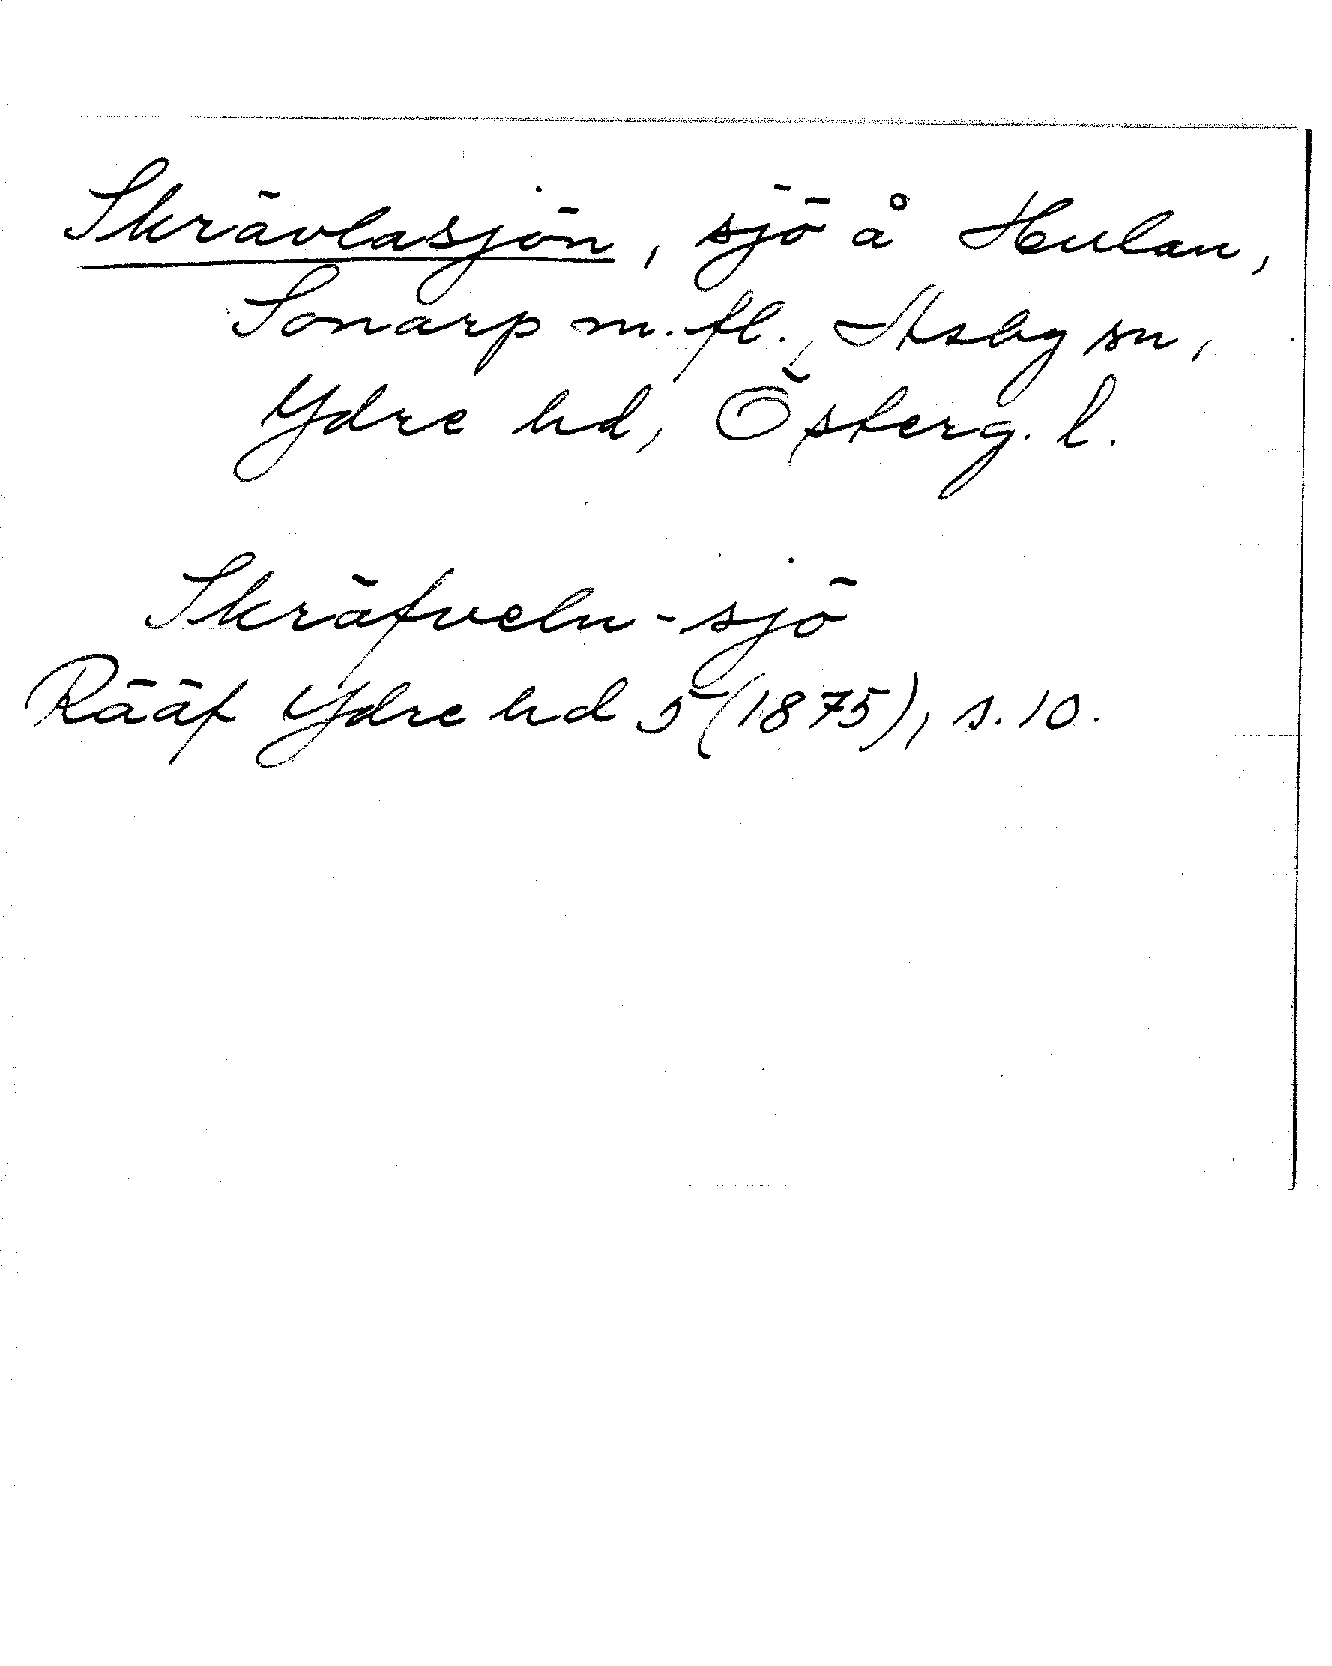 Skrävlasjön, sjö å Hulan,
Sonarp m.fl., Asby sn,
Ydre hd, Österg. l.
Skräfveln-sjö
Rääf Ydre hd 5 (1875), s. 10.